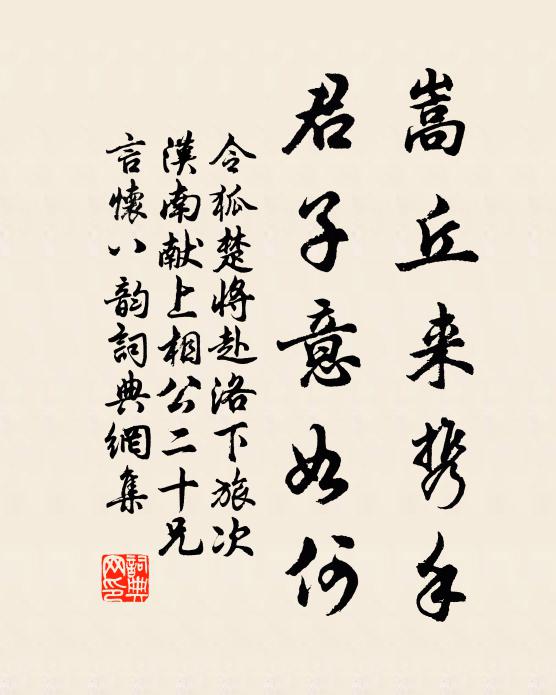 嵩丘来携手
君子意如何
令狐楚将赴洛下旅次
漢南献上相公二十兄
言懷八韵詞典網集
詞典
网印